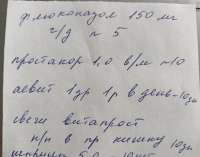 флюконазол 150 мг
ч/д № 5
простакор 1,0 в/м №10
аевит 1 др 1р в день - 10дн
свечи витапрост
н/п в пр кишку 10дн
5,0